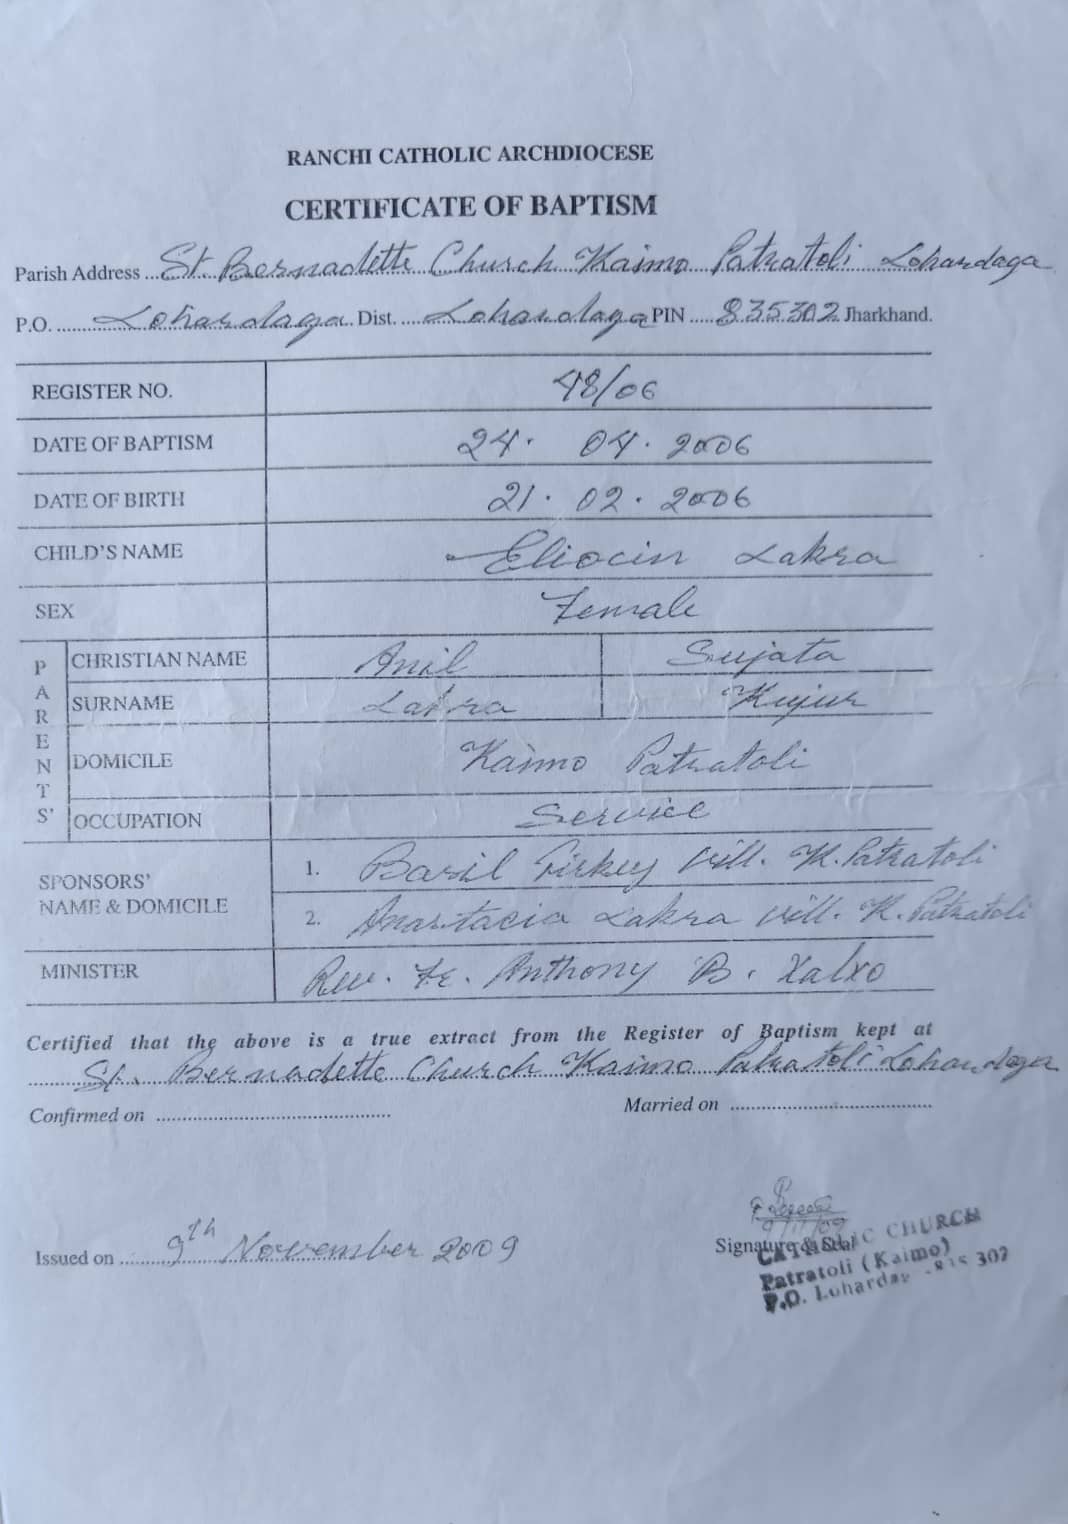 RANCHI CATHOLIC ARCHDIOCESE
CERTIFICATE OF BAPTISM
Parish Address ... St. Bernadette Church Kaimo Patratoli Lohardaga
P.O. ........ Lohardaga Dist. .... Lohardaga PIN ..... 835302 Jharkhand.
REGISTER NO. 48/06
DATE OF BAPTISM 24. 04. 2006
DATE OF BIRTH 21. 02. 2006
CHILD'S NAME Eliocin Lakra
SEX Female
PARENTS'
CHRISTIAN NAME Anil Sujata
SURNAME Lakra Kujur
DOMICILE Kaimo Patratoli
OCCUPATION Service
SPONSORS' NAME & DOMICILE
1. Basil Tirkey vill. K. Patratoli
2. Anastacia Lakra vill. K. Patratoli
MINISTER Rev. Fr. Anthony B. Xalxo
Certified that the above is a true extract from the Register of Baptism kept at
St. Bernadette Church Kaimo Patratoli Lohardaga
Confirmed on ........................................ Married on ...................................
9/11/09
Issued on ........ 9th November 2009 Signature & Seal
CATHOLIC CHURCH
Patratoli (Kaimo)
P.O. Lohardaga -835 302